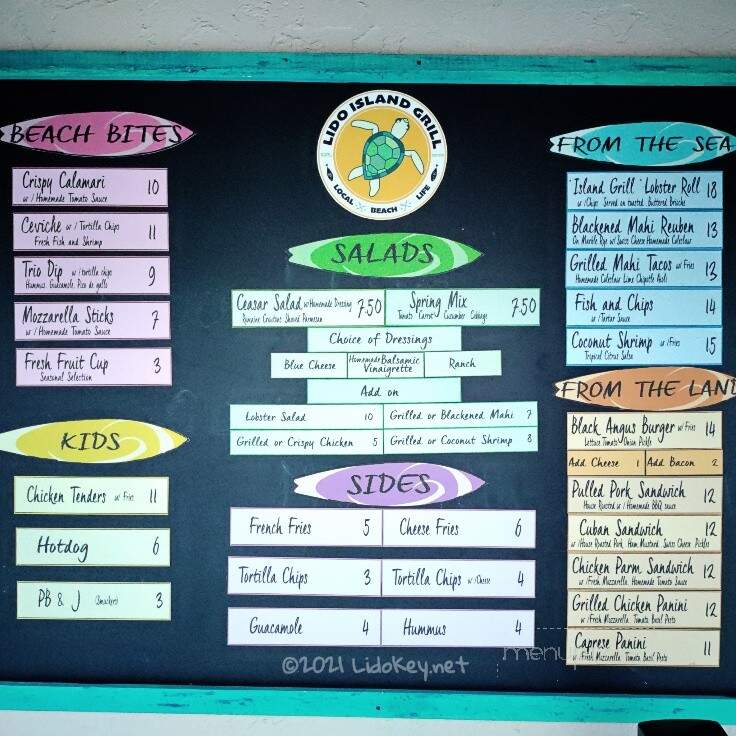 BEACH BITES
Crispy Calamari 10
w/ Homemade Tomato Sauce
Ceviche w/ Tortilla Chips 11
Fresh Fish and Shrimp
Trio Dip w/ tortilla chips 9
Hummus, Guacamole, Pico de gallo
Mozzarella Sticks 7
w/ Homemade Tomato Sauce
Fresh Fruit Cup 3
Seasonal Selection
KIDS
Chicken Tenders w/ Fries 11
Hotdog 6
PB & J (Smuckers) 3
LIDO ISLAND GRILL
LOCAL BEACH LIFE
SALADS
Ceasar Salad w/Homemade Dressing 7.50
Romaine Croutons Shaved Parmesan
Spring Mix 7.50
Tomato Carrot Cucumber Cabbage
Choice of Dressings
Blue Cheese
Homemade Balsamic
Vinaigrette
Ranch
Add on
Lobster Salad 10
Grilled or Blackened Mahi 7
Grilled or Crispy Chicken 5
Grilled or Coconut Shrimp 8
SIDES
French Fries 5
Cheese Fries 6
Tortilla Chips 3
Tortilla Chips w/Cheese 4
Guacamole 4
Hummus 4
FROM THE SEA
Island Grill Lobster Roll 18
w/Chips Served on toasted Buttered Brioche
Blackened Mahi Reuben 13
On Marble Rye w/Swiss Cheese Homemade Coleslaw
Grilled Mahi Tacos w/ Fries 13
Homemade Coleslaw Lime Chipotle Aioli
Fish and Chips 14
w/Tartar Sauce
Coconut Shrimp w/Fries 15
Tropical Citrus Salsa
FROM THE LAND
Black Angus Burger w/ Fries 14
Lettuce Tomato Onion Pickle
Add Cheese 1
Add Bacon 2
Pulled Pork Sandwich 12
House Roasted w/Homemade BBQ sauce
Cuban Sandwich 12
w/House Roasted Pork, Ham Mustard, Swiss Cheese Pickles
Chicken Parm Sandwich 12
w/Fresh Mozzarella Homemade Tomato Sauce
Grilled Chicken Panini 12
w/Fresh Mozzarella Tomato Basil Pesto
Caprese Panini 11
w/Fresh Mozzarella Tomato Basil Pesto
©2021 LidoKey.net